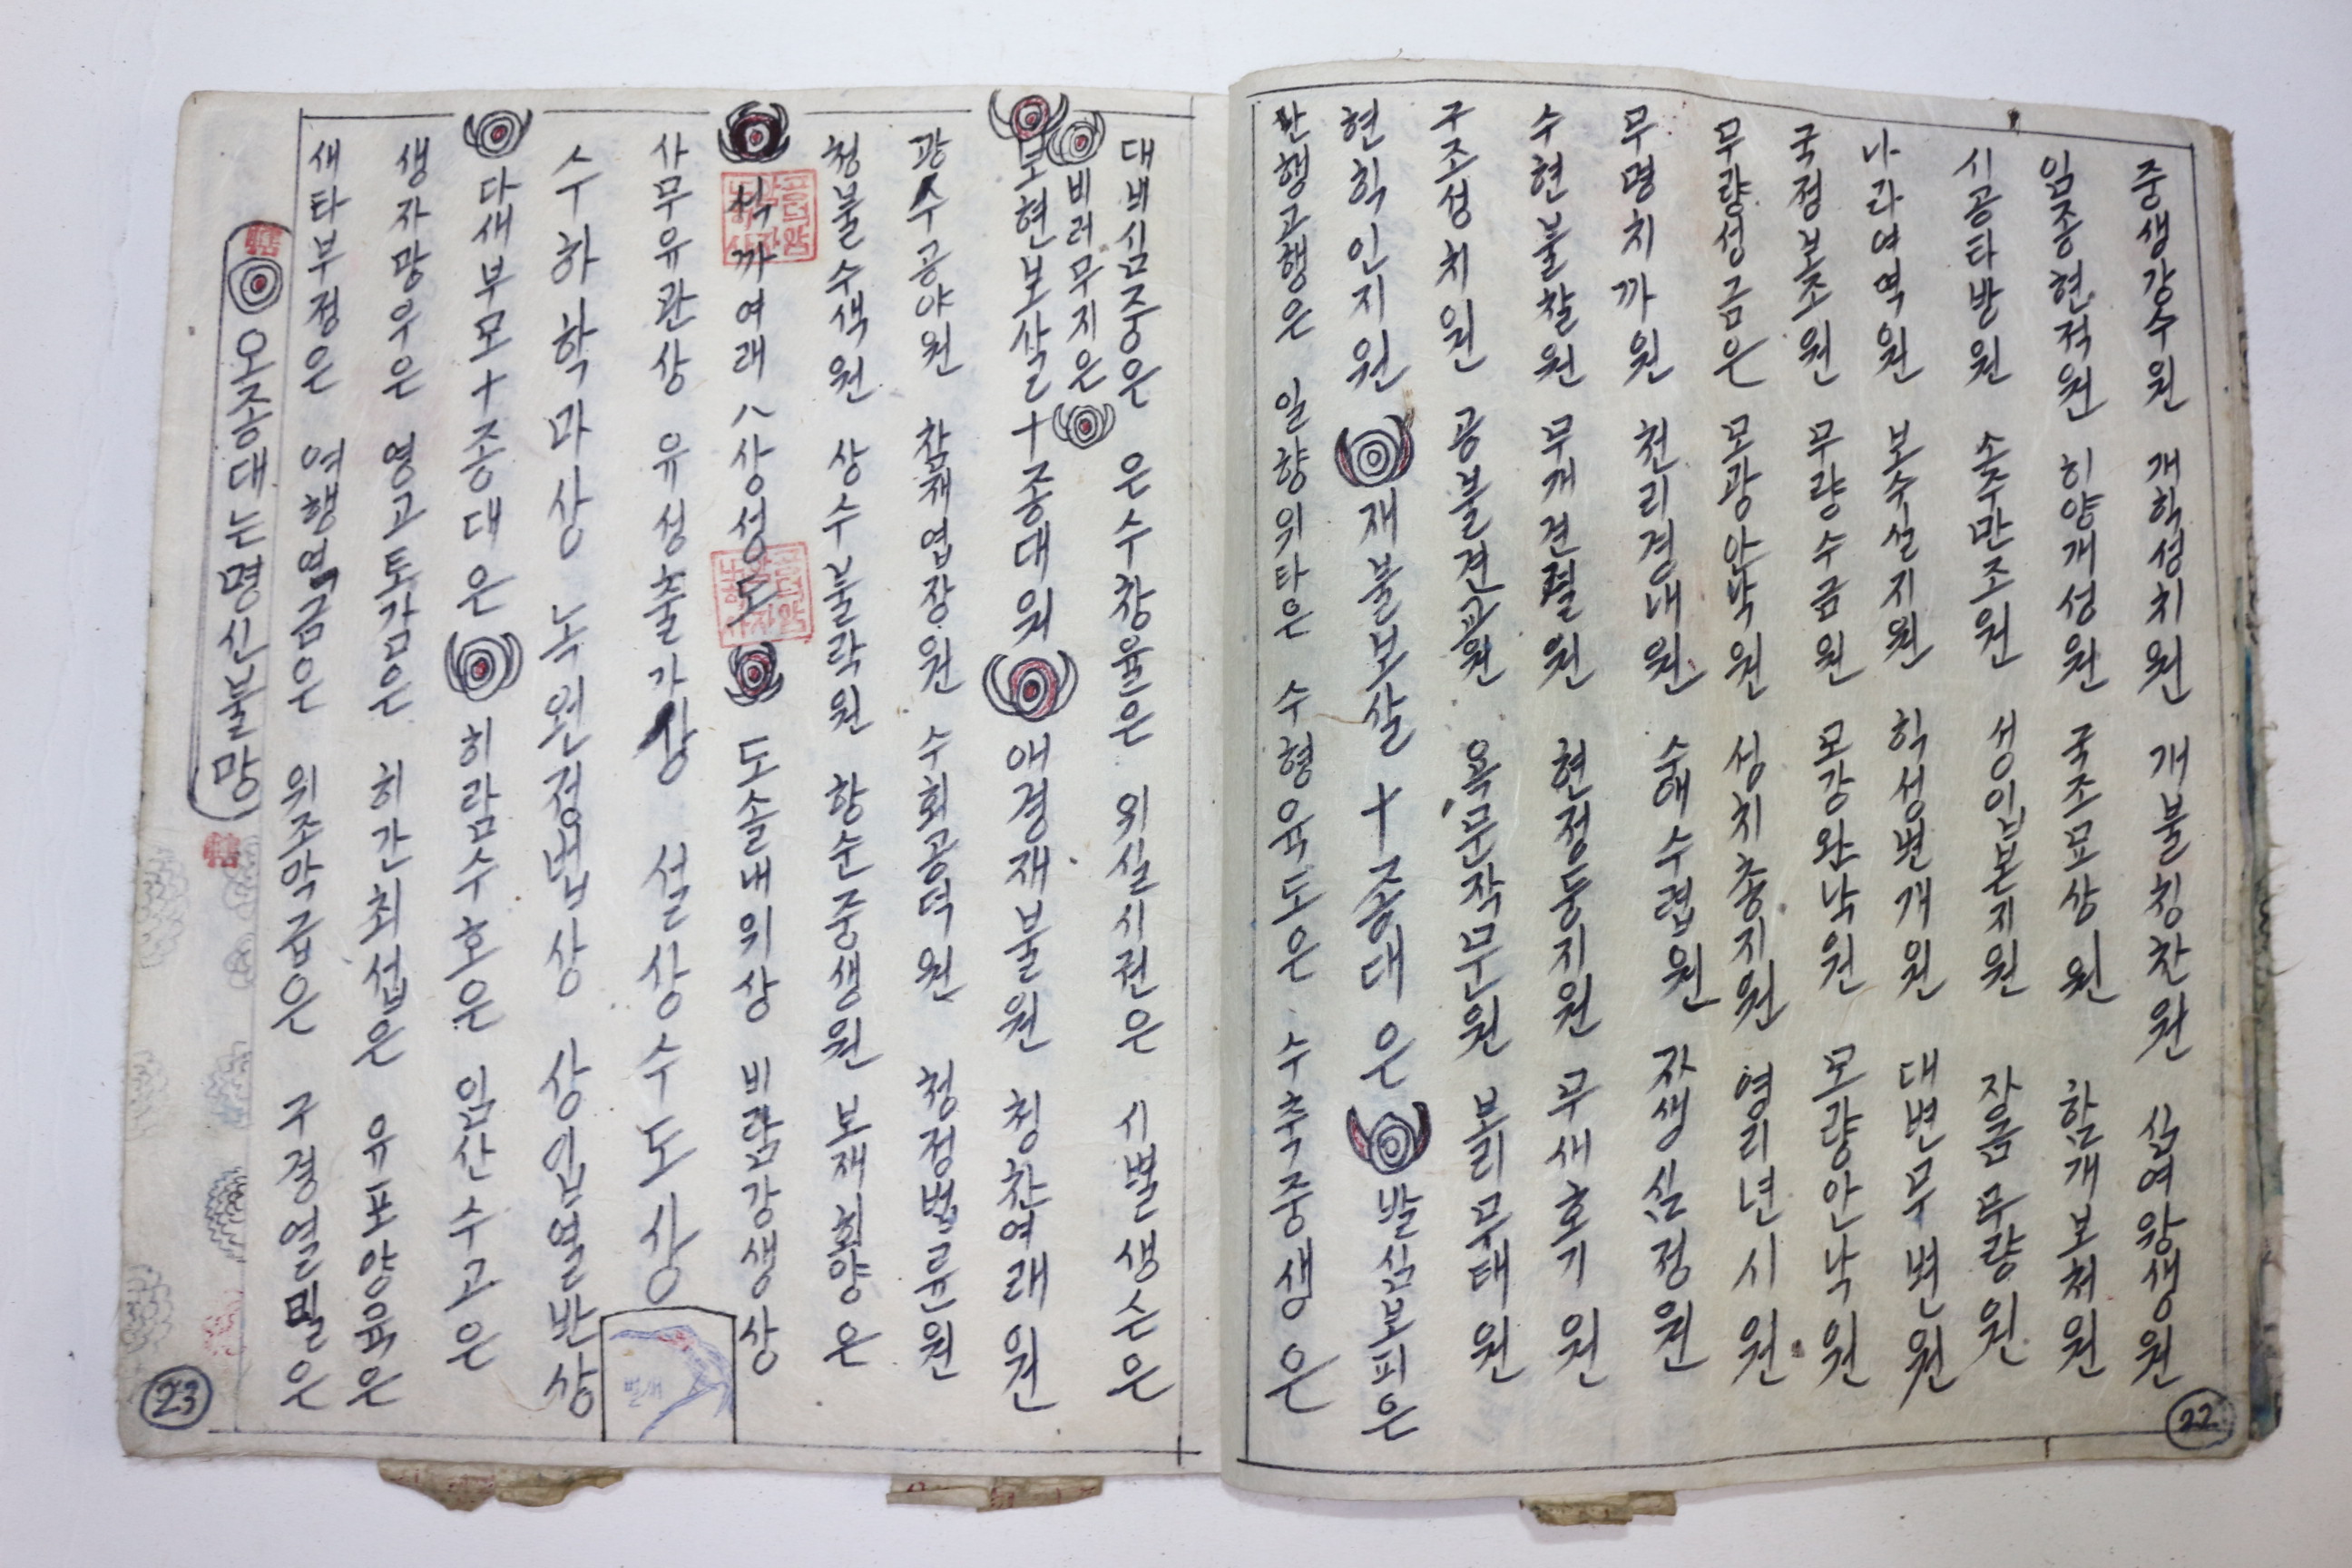 중생강수원 개학성치원 개불칭찬원 십여왕생원
임종현적원 히양개성원 국조모상원 함개보처원
시공타방원 소주만조원 성인본지원 자음무량원
나라여역원 보수설지원 학성변개원 대변무변원
국정보조원 무량수금원 모강완낙원 모량안낙원
무량성금은 모광안낙원 성치총지원 영리년시원
무명치까원 천리경대원 수애수렵원 자생심정원
수현불찰원 무개견 원 현정등지원 무새호기원
구조성치원 공불견교원 욕문작무원 보리무태원
현학인지원 재불보살十종대은 발심보피은
난행고행은 일향위타은 수형육도은 수축중생은
22
대비심중은 은수창율은 위실시권은 시별생슨은
비려무지은
보현보살十종대원 애경재불원 칭찬여래원
광수공야원 참재업장원 수회공덕원 청정법륜원
청불수색원 상수불락원 항순중생원 보재회양은
석까여래八상성도 도솔내위상 비람강생상
사무유관상 유성출가상 설상수도상
수하학마상 녹원정법상 상임열반상
다새부모十종대은 히람수호은 임산수고은
생자망우은 영고토감은 히간최섭은 유포양육은
새타부정은 여행역금은 위조악급은 구경열밀은
오종대는명신불망
23